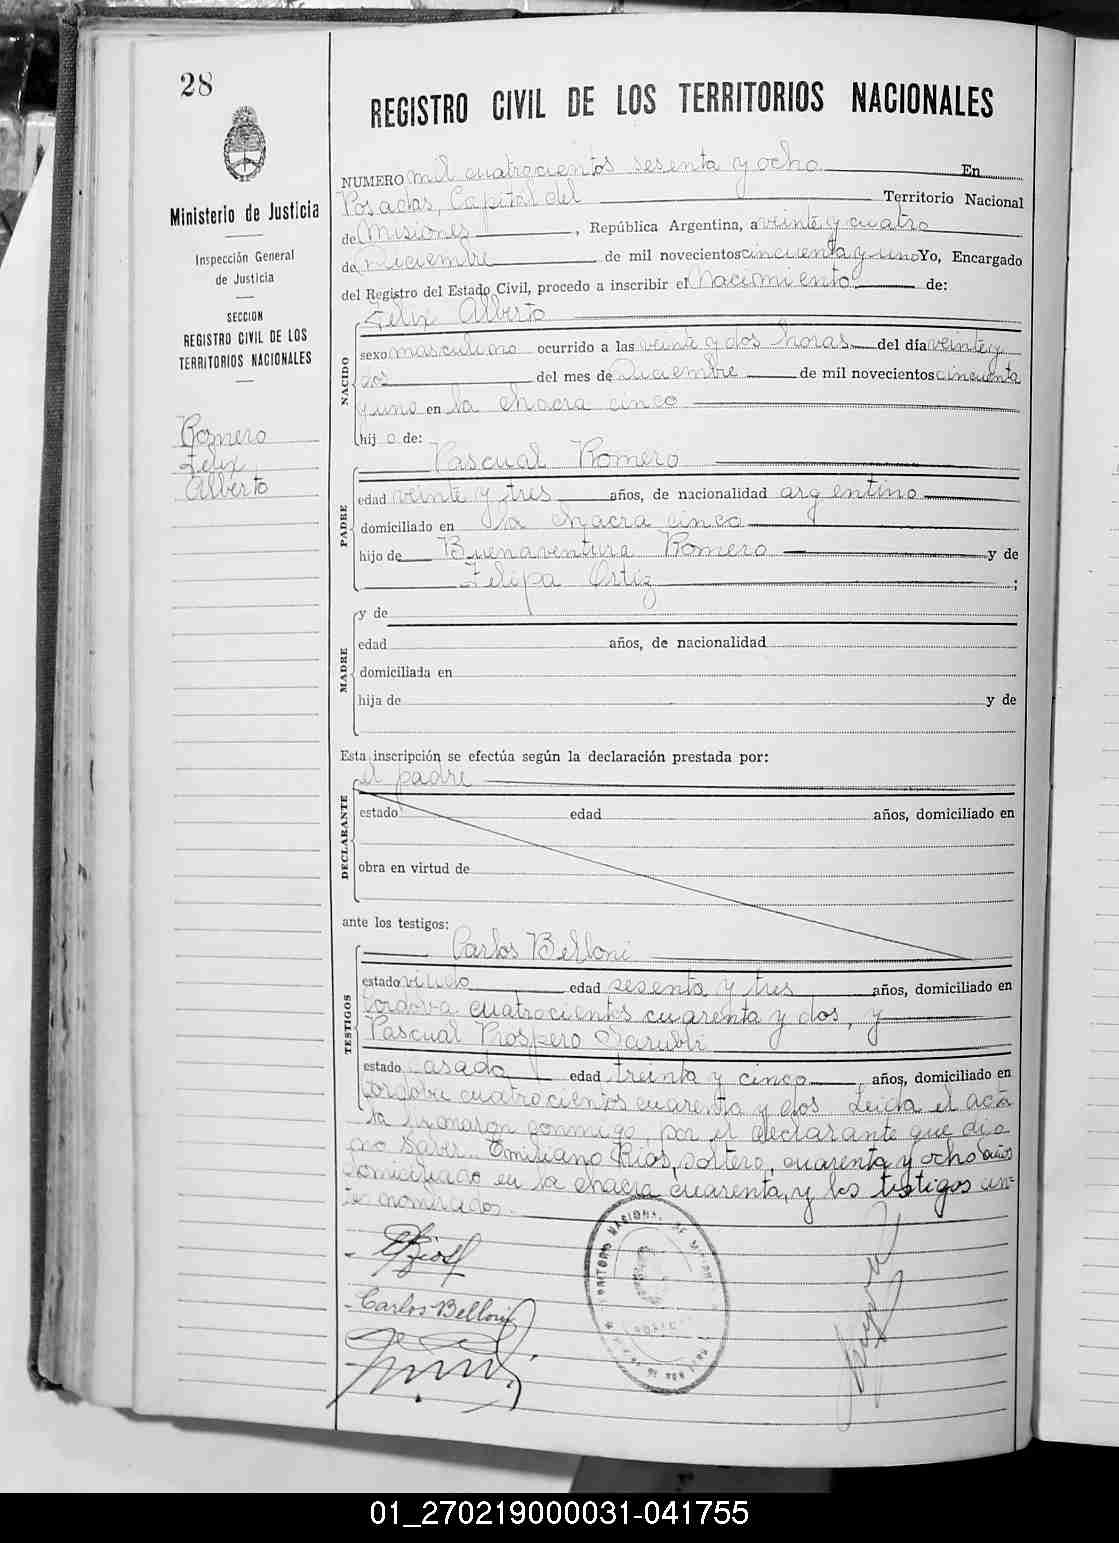 28
REGISTRO CIVIL DE LOS TERRITORIOS NACIONALES
Ministerio de Justicia
Inspección General
de Justicia
SECCION
REGISTRO CIVIL DE LOS
TERRITORIOS NACIONALES
Romero
Felix
Alberto
NUMERO mil cuatrocientos sesenta y ocho En
Posadas, Capital del Territorio Nacional
de Misiones, República Argentina, a veinte y cuatro
de Diciembre de mil novecientos cincuenta y uno Yo, Encargado
del Registro del Estado Civil, procedo a inscribir el Nacimiento de:
Felix Alberto
NACIDO
sexo masculino ocurrido a las veinte y dos horas del día veinte y
dos del mes de Diciembre de mil novecientos cincuenta
y uno en la chacra cinco
hij o de:
Pascual Romero
PADRE
edad veinte y tres años, de nacionalidad argentino
domiciliado en la chacra cinco
hijo de Buenaventura Romero y de
Felipa Ortiz ;
y de
MADRE
edad años, de nacionalidad
domiciliada en
hija de y de
Esta inscripción se efectúa según la declaración prestada por:
el padre
DECLARANTE
estado edad años, domiciliado en
obra en virtud de
ante los testigos:
Carlos Belloni
TESTIGOS
estado viudo edad sesenta y tres años, domiciliado en
Cordova cuatrocientos cuarenta y dos, y
Pascual Prospero
estado casado edad treinta y cinco años, domiciliado en
Cordoba cuatrocientos cuarenta y dos Leida el acta
la firmaron conmigo, por el declarante que dijo
no saber Emiliano Rios, soltero, cuarenta y ocho años
domiciliado en la chacra cuarenta, y los testigos an-
tes nombrados.
ERios
Carlos Belloni
01_270219000031-041755